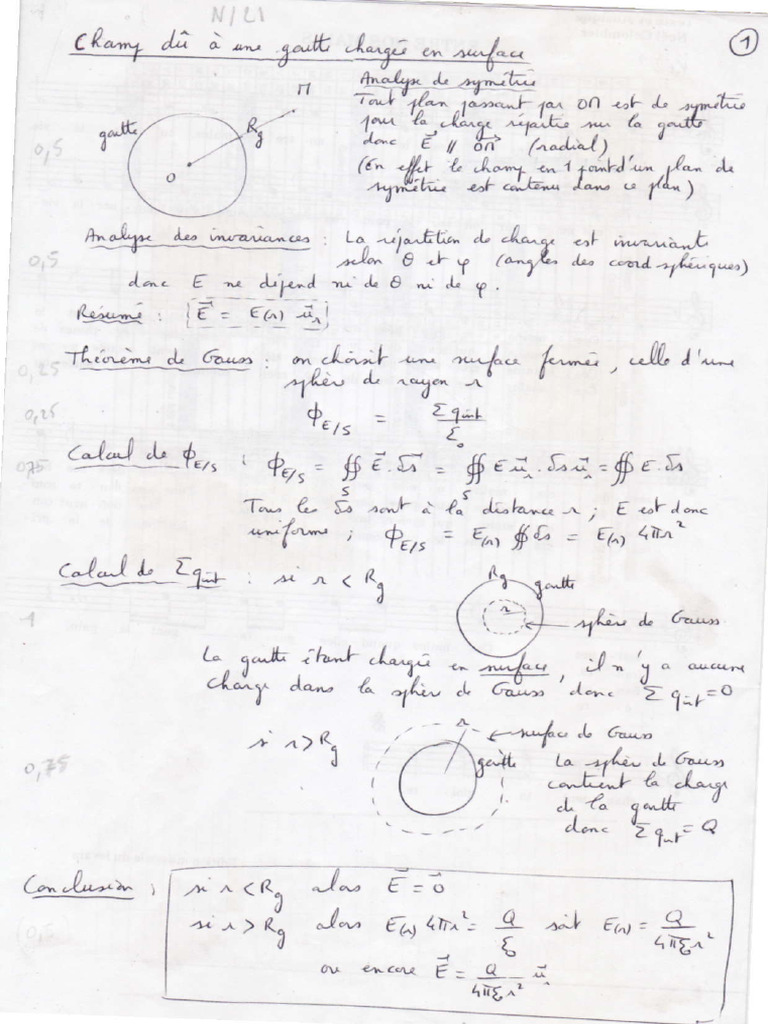 N/21
①
Champ dû à une goutte chargée en surface
Analyse de symétrie
Tout plan passant par OM est de symétrie
pour la charge répartie sur la goutte
donc E⃗ // OM⃗ (radial)
(En effet le champ en 1 point d'un plan de
symétrie est contenu dans ce plan)
M
goutte
Rg
O
0,5
Analyse des invariances : La répartition de charge est invariante
selon θ et φ (angles des coord sphériques)
0,5
donc E ne dépend ni de θ ni de φ.
Résumé : E⃗ = E(r) u⃗r
Théorème de Gauss : on choisit une surface fermée, celle d'une
sphère de rayon r
0,25
0,25
ϕE/S = Σqint/ε0
Calcul de ϕE/S : ϕE/S = ∯S E⃗.δs⃗ = ∯S E u⃗r.δs u⃗r = ∯ E.δs
0,75
Tous les δs sont à la distance r ; E est donc
uniforme ; ϕE/S = E(r) ∯δs = E(r) 4πr²
Calcul de Σqint : si r < Rg
Rg
goutte
r
sphère de Gauss
1
La goutte étant chargée en surface, il n'y a aucune
charge dans la sphère de Gauss donc Σqint = 0
si r > Rg
r
surface de Gauss
goutte
La sphère de Gauss
contient la charge
de la goutte
donc Σqint = Q
0,75
Conclusion : si r < Rg alors E⃗ = 0⃗
si r > Rg alors E(r) 4πr² = Q/ε0 soit E(r) = Q/4πε0r²
ou encore E⃗ = Q/4πε0r² u⃗r
(0,5)